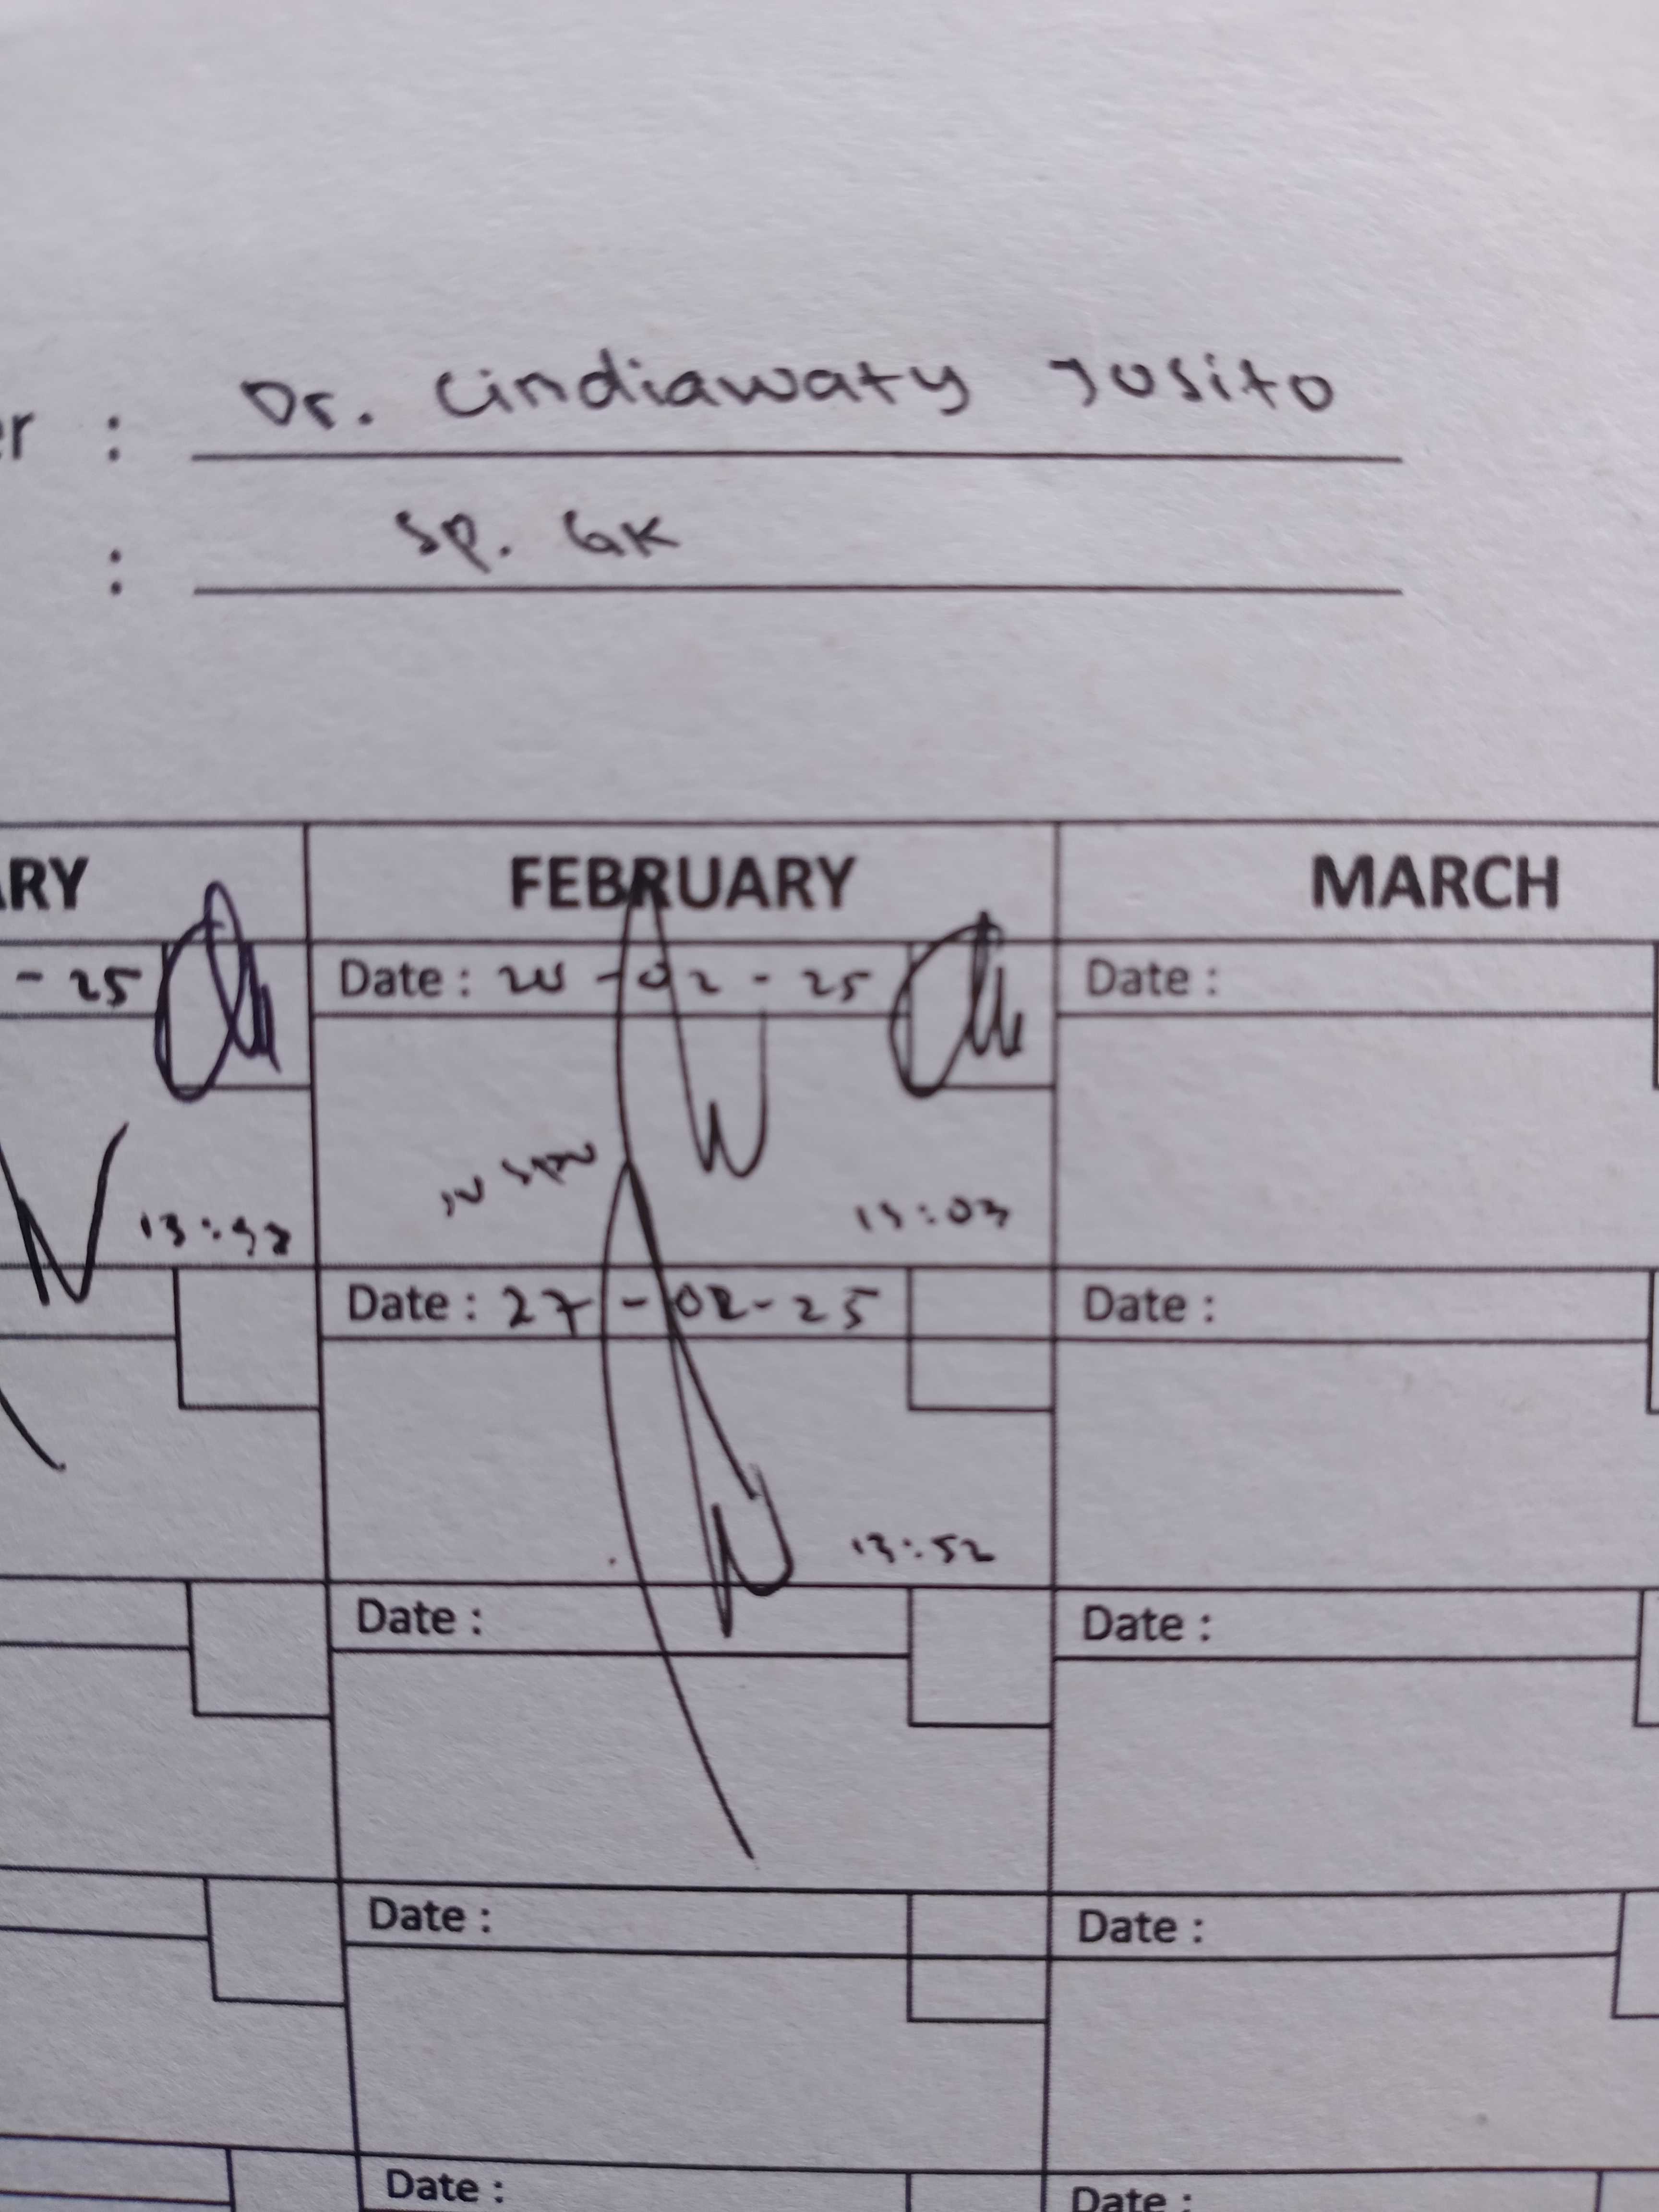 er : Dr. Cindiawaty Josito
: Sp. GK
ARY FEBRUARY MARCH
- 25 Date : - 02 - 25 Date :
13:03
Date : 27 - 02 - 25 Date :
13:52
Date : Date :
Date : Date :
Date : Date :